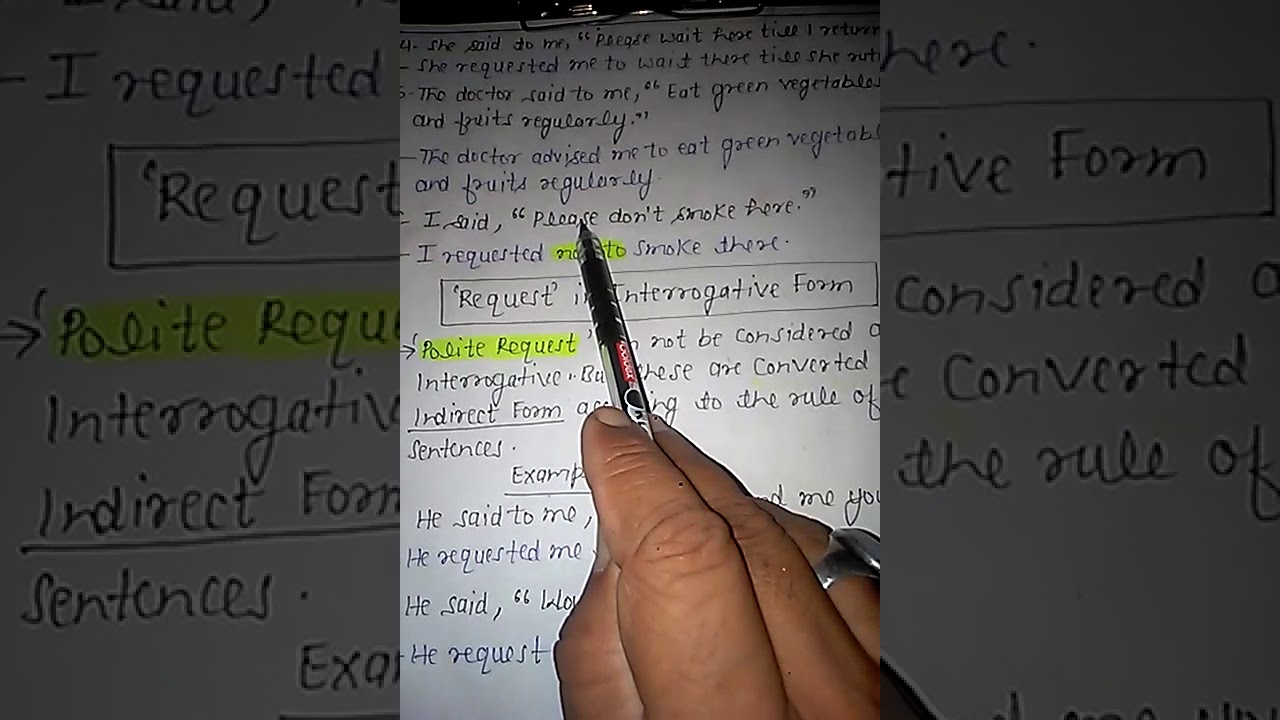 4- She said to me, "Please wait here till I return
- She requested me to wait there till she
5- The doctor said to me, "Eat green vegetables
and fruits regularly."
- The doctor advised me to eat green vegetab
and fruits regularly.
- I said, "Please don't smoke here."
- I requested not to smoke there.
'Request' in Interrogative Form
→ 'Polite Request' not be considered a
Interrogative. But these are Converted
Indirect Form according to the rule of
Sentences.
Examp
He said to me, me you
He requested me
He said, "
- He request